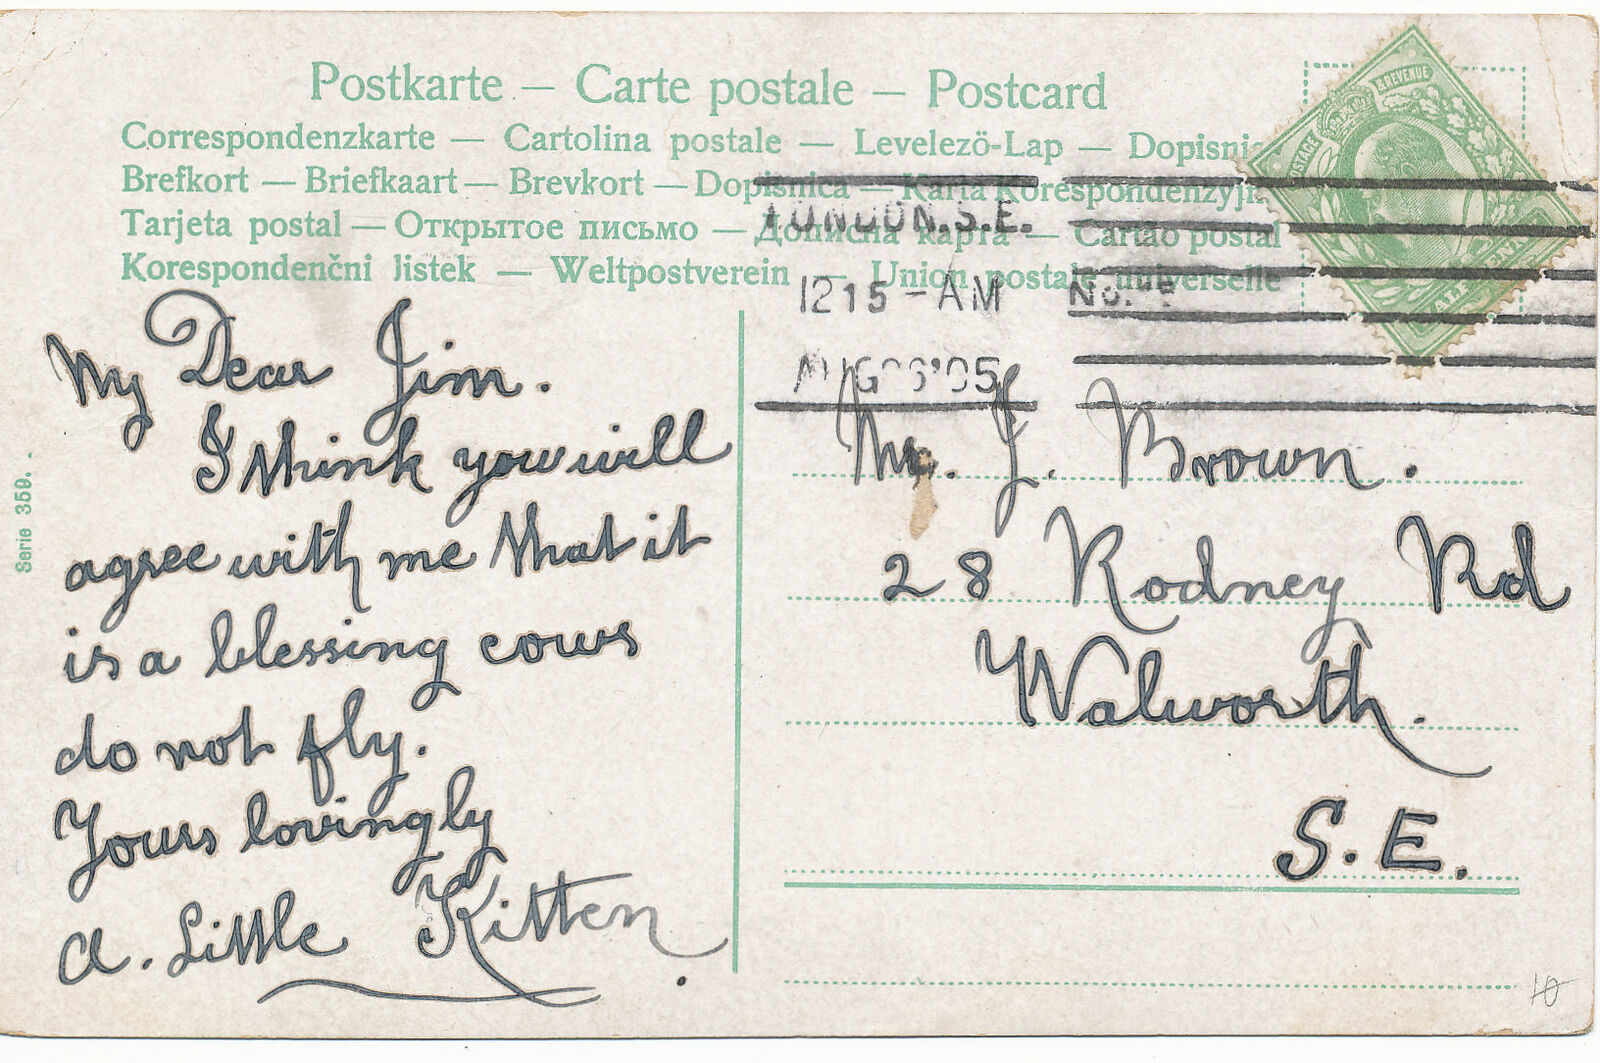 Postkarte — Carte postale — Postcard
Correspondenzkarte — Cartolina postale — Levelezö-Lap — Dopisnic
Brefkort — Briefkaart — Brevkort — Dopisnica — Karta Korespondenzyjn
Tarjeta postal — Открытое письмо — Дописна карта — Cartão postal
Korespondenčni listek — Weltpostverein — Union postale universelle
POSTAGE & REVENUE
HALFPENNY
LONDON.S.E.
12 15 - AM
AUG 6 '05
My Dear Jim.
I think you will
agree with me that it
is a blessing cows
do not fly.
Yours lovingly
A. Little Kitten.
Mr. J. Brown.
28 Rodney Rd
Walworth.
S.E.
Serie 359.
10